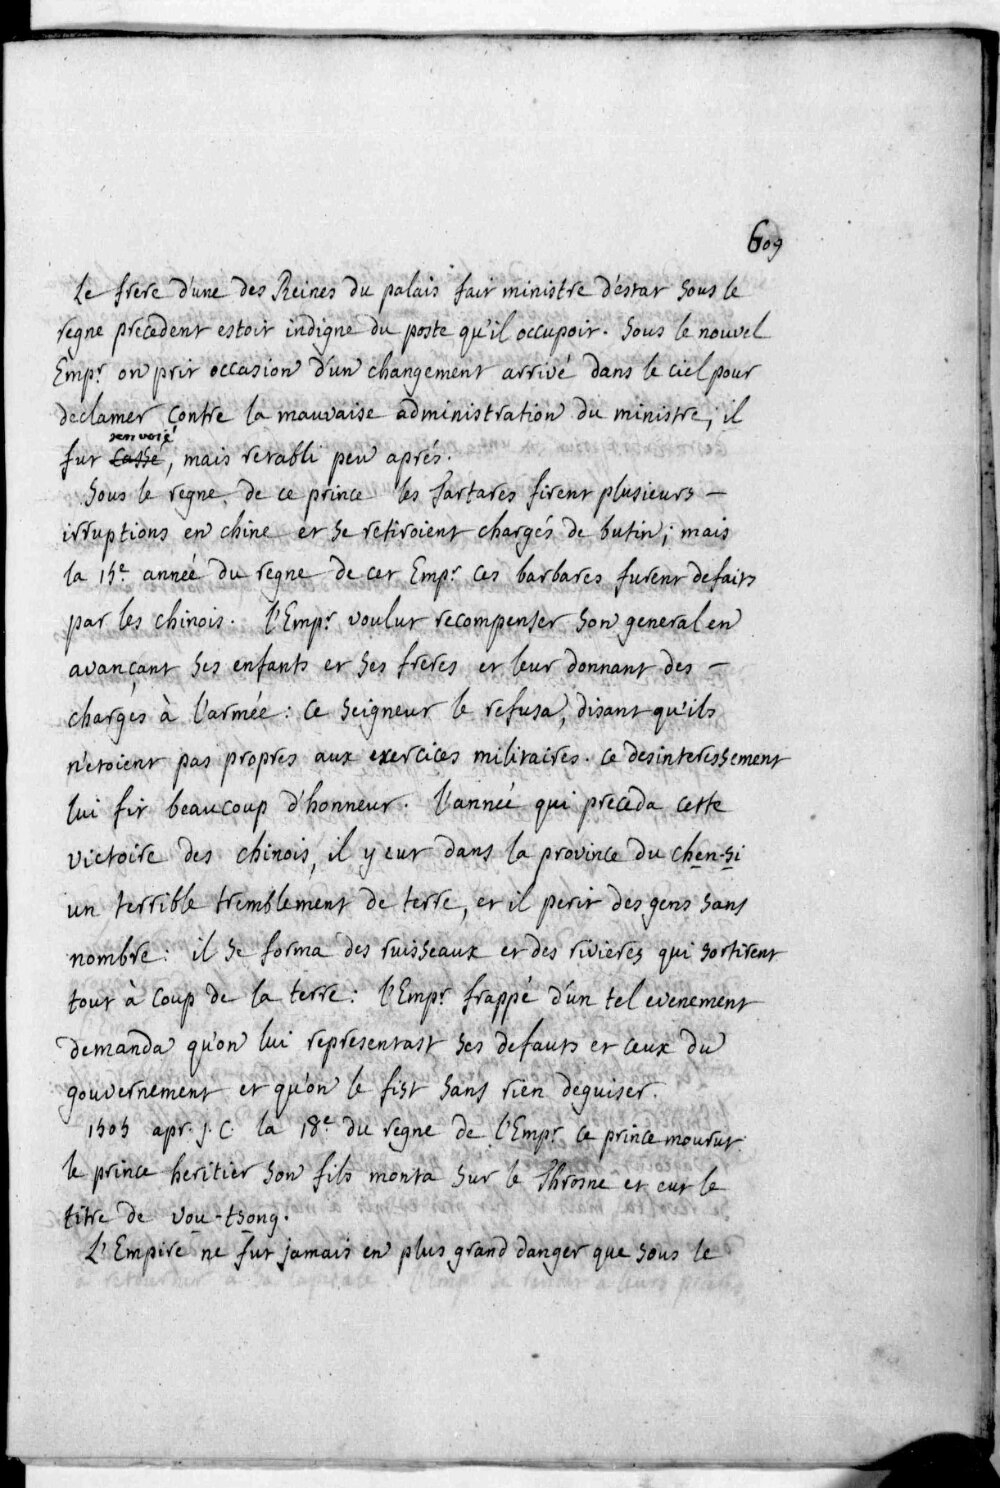 609
Le frere d'une des Reines du palais fait ministre d'estat sous le
regne precedent estoit indigne du poste qu'il occupoit. Sous le nouvel
Empr. on prit occasion d'un changement arrivé dans le ciel pour
declamer contre la mauvaise administration du ministre; il
renvoié
fut cassé, mais retabli peu aprés.
Sous le regne de ce prince les Tartares firent plusieurs –
irruptions en chine et se retiroient chargés de butin; mais
la 15e. année du regne de cet Empr. ces barbares furent defaits
par les chinois. l'Empr. voulut recompenser son general en
avançant ses enfants et ses freres et leur donnant des –
charges à l'armée: ce seigneur le refusa, disant qu'ils
n'etoient pas propres aux exercices militaires. ce desinteressement
lui fit beaucoup d'honneur. l'année qui preceda cette
victoire des chinois, il y eut dans la province du chen-si
un terrible tremblement de terre, et il perit des gens sans
nombre: il se forma des ruisseaux et des rivieres qui sortirent
tout à coup de la terre: l'Empr. frappé d'un tel evenement
demanda qu'on lui representast ses defauts et ceux du
gouvernement et qu'on le fist sans rien deguiser.
1505 apr. j. C. la 18e du regne de l'Empr. ce prince mourut.
le prince heritier son fils monta sur le Throsne et eut le
titre de vou-tsong.
L'Empire ne fut jamais en plus grand danger que sous le